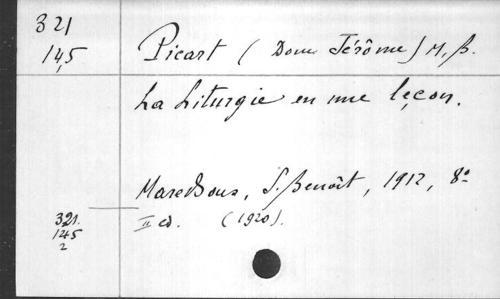 321
14,5
Picart (Dom Jérôme) M, B.
La Liturgie en une leçon.
Maredsous, S. Benoît, 1912, 8º
321.
145
2
II ed. (1920).